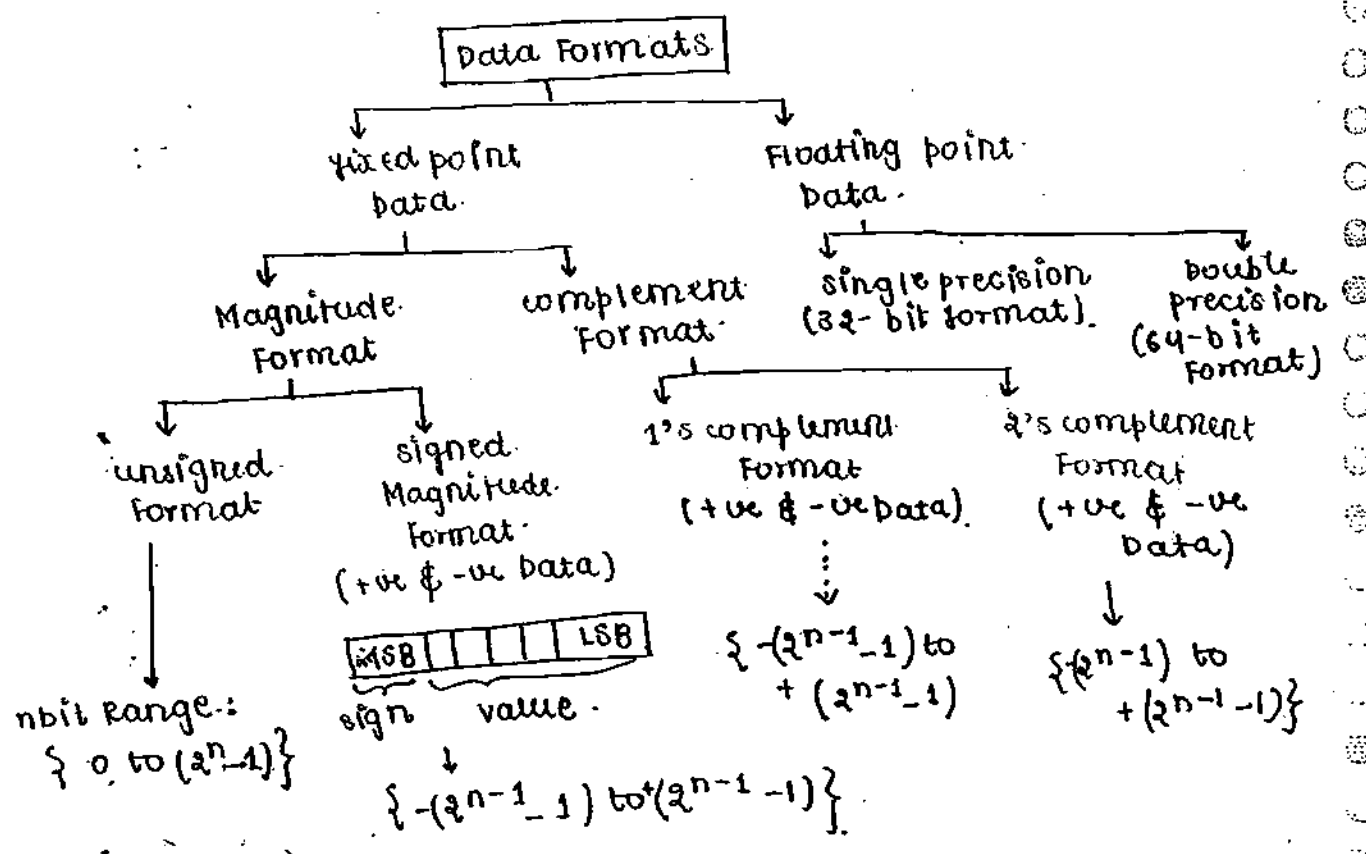 Data Formats
Fixed point
Data.
Floating point
Data.
Magnitude
Format
complement
Format
single precision
(32-bit format).
Double
precision
(64-bit
Format)
unsigned
Format
signed
Magnitude
Format
(+ve & -ve Data)
1's complement
Format
(+ve & -ve Data).
2's complement
Format
(+ve & -ve
Data)
MSB LSB
sign value.
nbit Range.:
{ 0 to (2^n-1)}
{-(2^n-1-1) to +(2^n-1-1)}.
{ -(2^n-1-1) to
+ (2^n-1-1)
{-(2^n-1) to
+(2^n-1-1)}